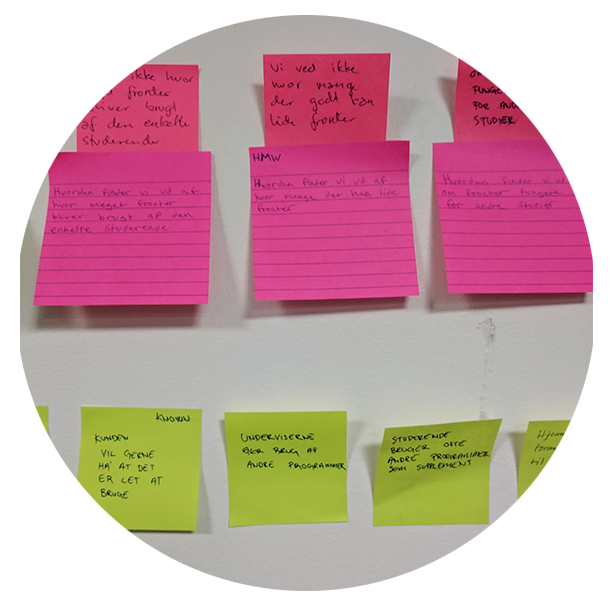 ikke hvor
fronter
bliver brugt
af den enkelte
studerende
Vi ved ikke
hvor mange
der godt kan
lide fronter
FOR AND
STUDIER
Hvordan finder vi ud af
hvor meget fronter
bliver brugt af den
enkelte studerende
HMW
Hvordan finder vi ud af
hvor mange der kan lide
fronter
Hvordan finder vi ud
om fronter fungere
for andre studier
KNOWN
KUNDEN
VIL GERNE
HA' AT DET
ER LET AT
BRUGE
UNDERVISERNE
GØR BRUG AF
ANDRE PROGRAMMER
STUDERENDE
BRUGER OFTE
ANDRE PROGRAMMER
SOM SUPLEMENT